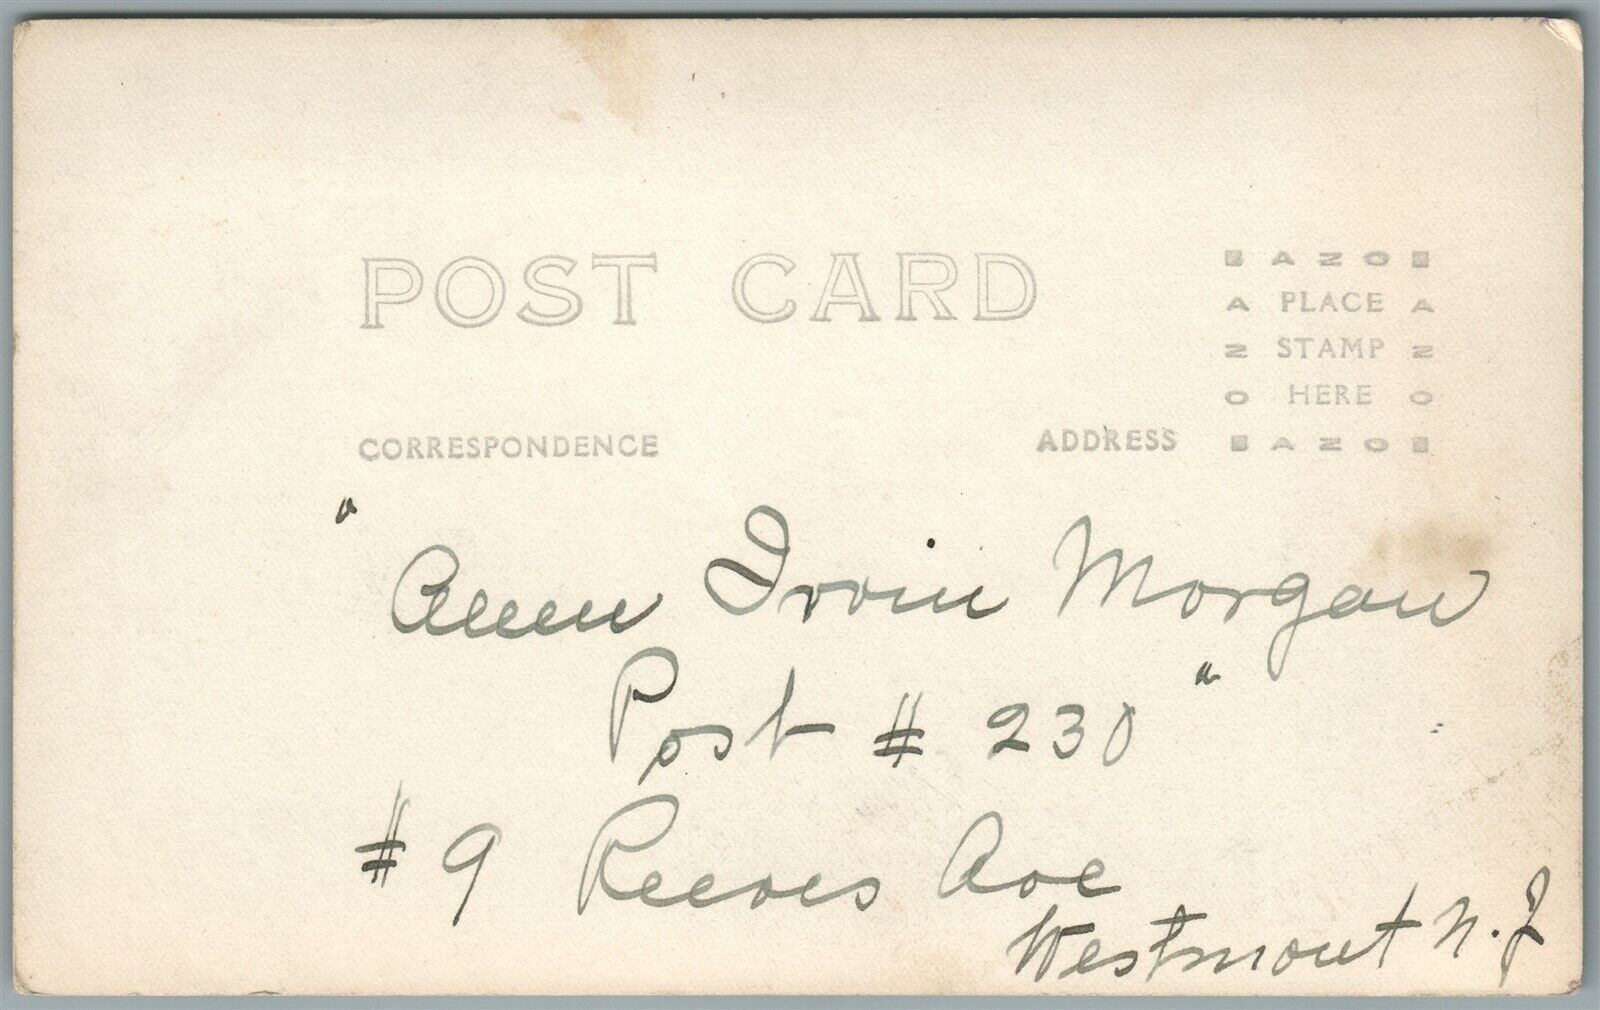 POST CARD
AZO
A PLACE A
Z STAMP Z
O HERE O
AZO
CORRESPONDENCE
ADDRESS
"Allen Irvin Morgan
Post # 230"
#9 Reeves Ave
Westmont N.J